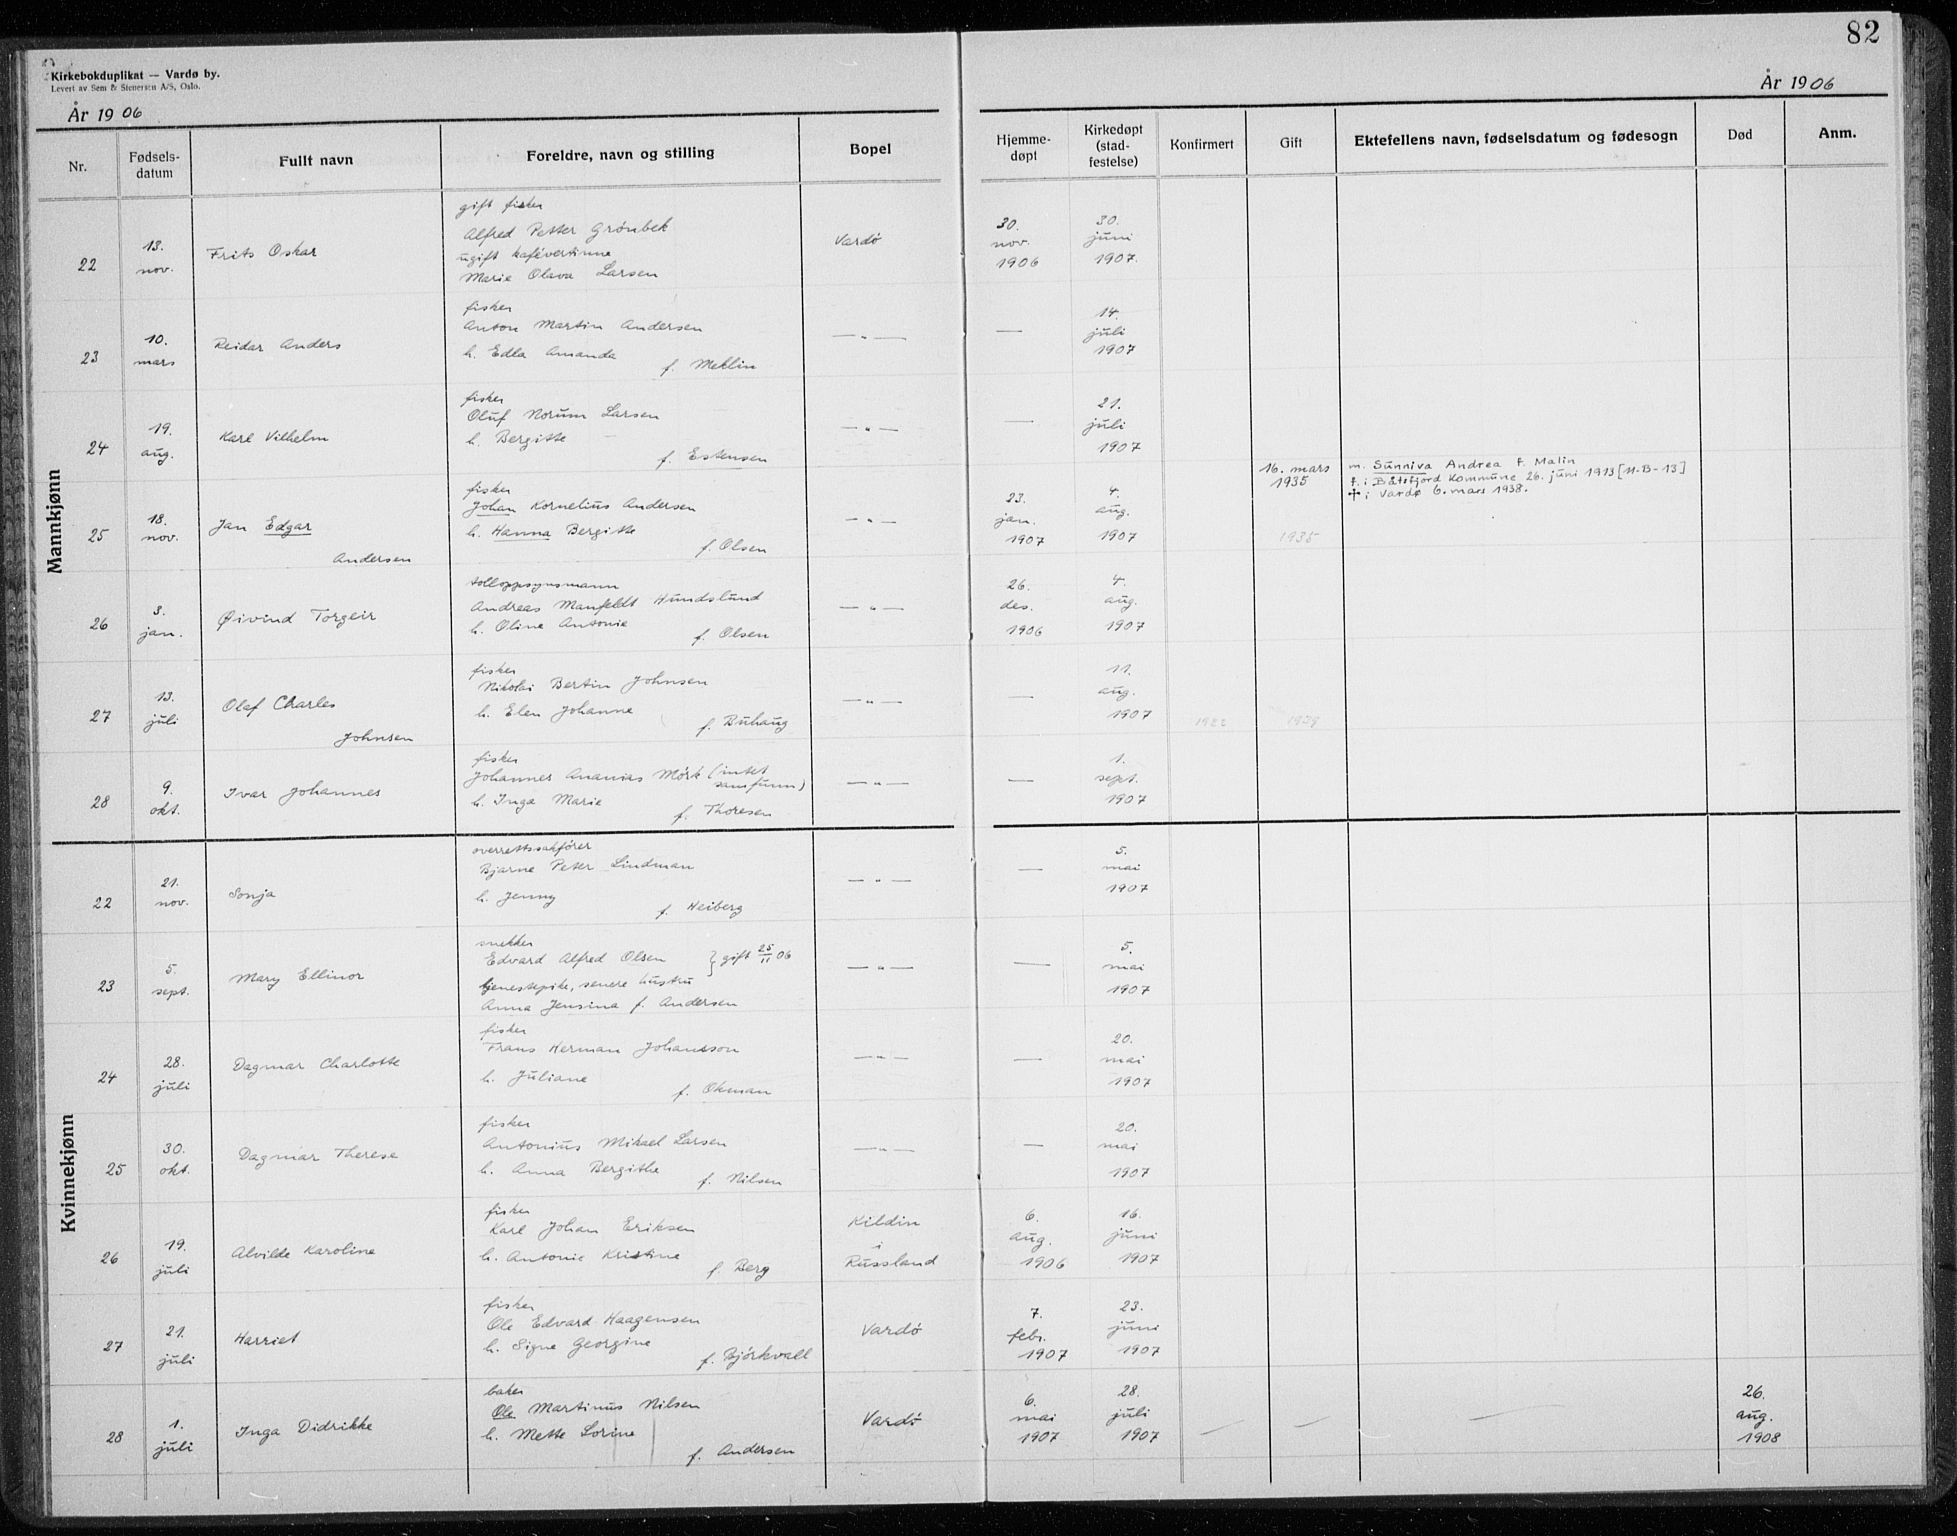 82
Kirkebokduplikat — Vardø by.
Levert av Sem & Stenersen A/S, Oslo.
År 1906
År 1906
Nr. Fødsels-datum Fullt navn Foreldre, navn og stilling Bopel Hjemme-døpt Kirkedøpt (stad-festelse) Konfirmert Gift Ektefellens navn, fødselsdatum og fødesogn Død Anm.
Mannkjønn
gift fisker
Alfred Petter Grönbek
22 13. nov. Frits Oskar ugift kafévertinne Vardø 30. nov. 1906 30. juni 1907.
Marie Olava Larsen
fisker
Anton Martin Andersen
23 10. mars Reidar Anders h. Edla Amanda — „ — — 14. juli 1907
f. Meklin
fisker
Oluf Norum Larsen
24 19. aug. Karl Vilhelm h. Bergitte — „ — — 21. juli 1907
f. Estensen
fisker
Johan Kornelius Andersen
25 18. nov. Jan Edgar Andersen h. Hanna Bergitte — „ — 23. jan. 1907 4. aug. 1907 16. mars 1935 1935
f. Olsen
m. Sunniva Andrea f. Malin
f. i Båtsfjord Kommune 26. juni 1913 [11-B-13]
✝ i Vardø 6. mars 1938.
tolloppsynsmann
Andreas Manfeldt Hundslund
26 3. jan. Øivind Torgeir h. Oline Antonie — „ — 26. des. 1906 4. aug. 1907
f. Olsen
fisker
Nikolai Bertin Johnsen
27 13. juli Olaf Charles Johnsen h. Elen Johanne — „ — — 11. aug. 1907 1922 1929
f. Buhaug
fisker
Johannes Ananias Mörk (intet samfunn)
28 9. okt. Ivar Johannes h. Inga Marie — „ — — 1. sept. 1907
f. Thoresen
Kvinnekjønn
overrettssakfører
Bjarne Peter Lindman
22 21. nov. Sonja h. Jenny — „ — — 5. mai 1907
f. Heiberg
snekker
Edvard Alfred Olsen } gift 25/11 06
23 5. sept. Mary Ellinor tjenestepike, senere hustru — „ — — 5. mai 1907
Anna Jensina f. Andersen
fisker
Frans Herman Johansson
24 28. juli Dagmar Charlotte h. Juliane — „ — — 20. mai 1907
f. Okman
fisker
Antonius Mikael Larsen
25 30. okt. Dagmar Therese h. Anna Bergithe — „ — — 20. mai 1907
f. Nilsen
fisker
Karl Johan Eriksen
26 19. juli Alvilde Karoline h. Antonie Kristine Kildin i Russland 6. aug. 1906 16. juni 1907
f. Berg
fisker
Ole Edvard Haagensen
27 21. juli Harriet h. Signe Georgine Vardø 7. febr. 1907 23. juni 1907
f. Björkvall
baker
Ole Martinus Nilsen
28 1. juli Inga Didrikke h. Mette Lorine Vardö 6. mai 1907 28. juli 1907 — — — 26. aug. 1908
f. Andersen